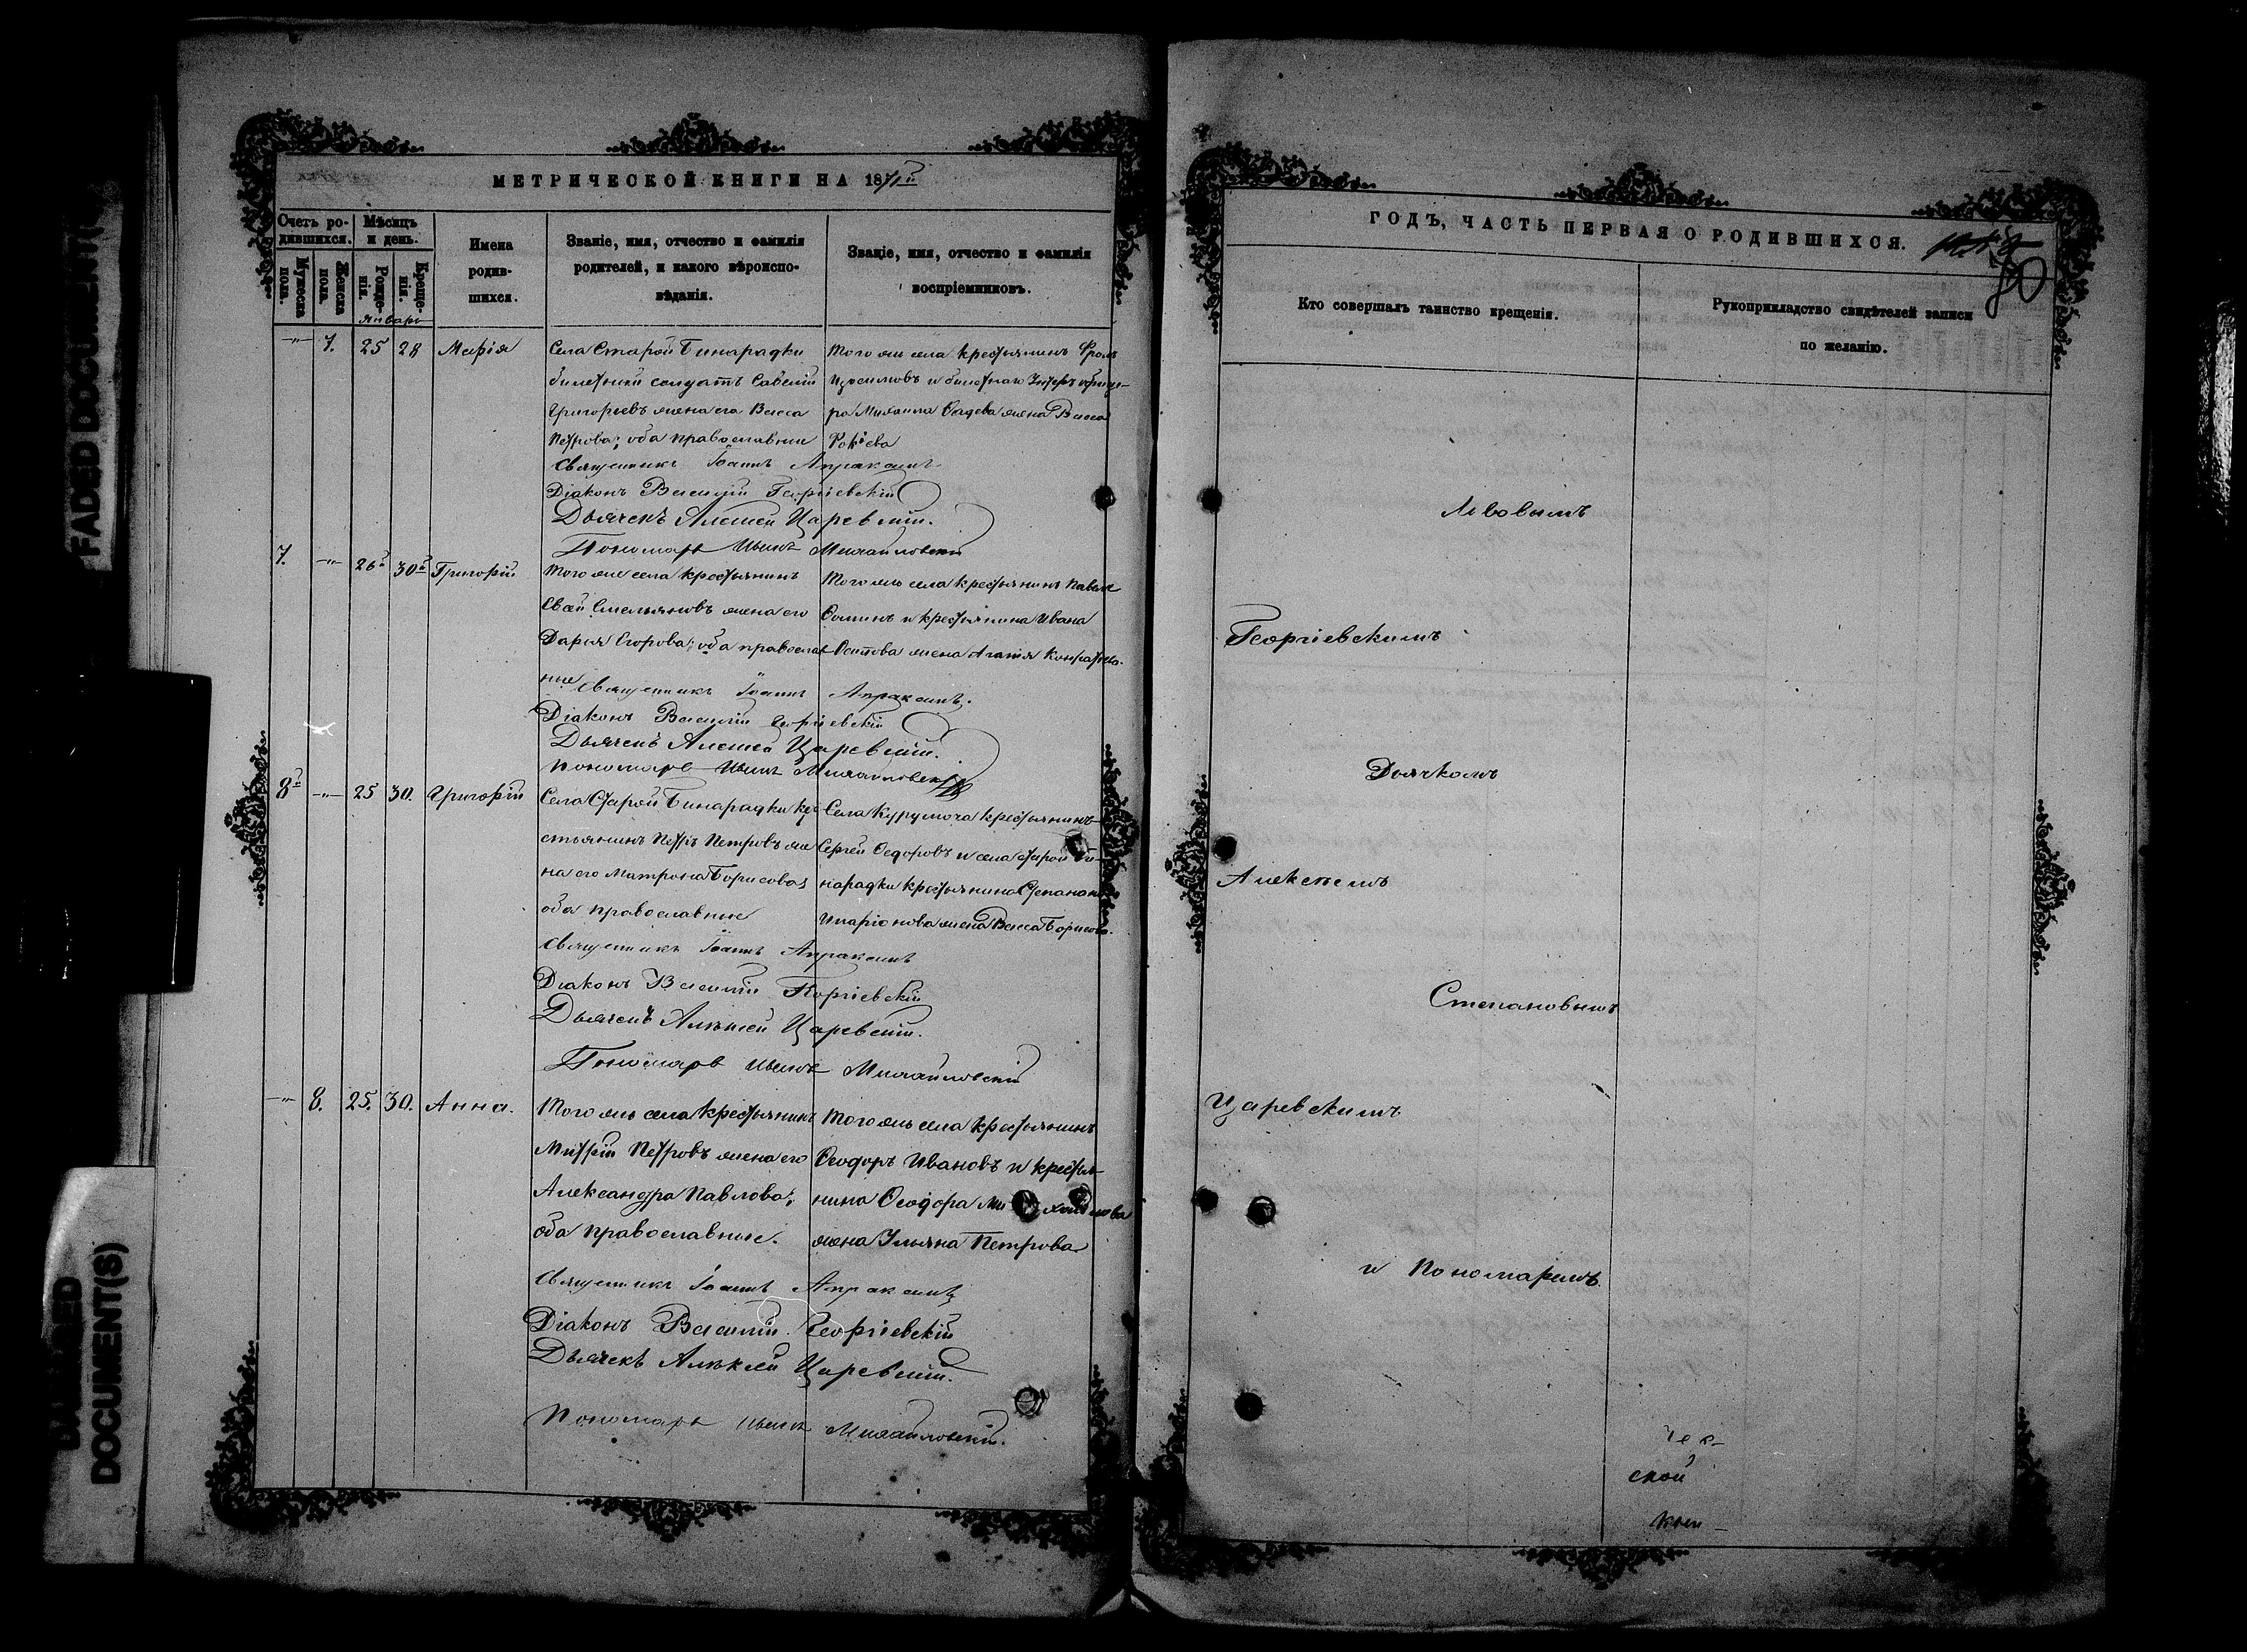 FADED DOCUMENT(
DOCUMENT(S)
МЕТРИЧЕСКОЙ КНИГИ НА 1871й
Счетъ ро-
дившихся.
Мѣсяцъ
и день.
Мужеска
пола.
Женска
пола.
Рожде-
нія.
Креще-
нія.
Январь
Имена
родив-
шихся.
Званіе, имя, отчество и фамилія
родителей, и какого вѣроиспо-
вѣданія.
Званіе, имя, отчество и фамилія
воспріемниковъ.
7. 25 28 Марія
Села Старой Бинарадки
билетный солдатъ Савелій
Григорьевъ жена его Васса
Петрова; оба православные
Того же села крестьянинъ
и билетнаго Унтеръ офице-
ра Михаила жена Васса
Фокіева
Священникъ Іоаннъ Апраксинъ
Діаконъ Василій Георгіевскій
Дьячекъ Алексей Царевскій.
Пономарь Иванъ Михайловскій
7. 26й 30й Григорій
Того же села крестьянинъ
Емельяновъ жена его
Дарья Егорова; оба православ-
ные
Того же села крестьянинъ Павелъ
Ѳоминъ и крестьянина Ивана
Осипова жена Агафія
Священникъ Іоаннъ Апраксинъ.
Діаконъ Василій Георгіевскій
Дьячекъ Алексей Царевскій.
Пономарь Иванъ Михайловскій
8й 25 30. Григорій
Села Старой Бинарадки кре-
стьянинъ Петръ Петровъ же-
на его Матрона Борисова;
оба православные
Села Курумоча крестьянинъ
Сергей Ѳедоровъ и села Старой Би-
нарадки крестьянина Степана
Иларіонова жена Васса Борисова.
Священникъ Іоаннъ Апраксинъ
Діаконъ Василій Георгіевскій
Дьячекъ Алексей Царевскій.
Пономарь Иванъ Михайловскій
8. 25. 30. Анна.
Того жъ села крестьянинъ
Митрій Петровъ жена его
Александра Павлова;
оба православные.
Того жъ села крестьянинъ
Ѳеодоръ Ивановъ и крестья-
нина Ѳеодора Михайлова
жена Ульяна Петрова
Священникъ Іоаннъ Апраксинъ
Діаконъ Василій Георгіевскій
Дьячекъ Алексей Царевскій.
Пономарь Иванъ Михайловскій.
ГОДЪ, ЧАСТЬ ПЕРВАЯ О РОДИВШИХСЯ.
Кто совершалъ таинство крещенія.
Рукоприкладство свидѣтелей записи
по желанію.
Львовымъ
Георгіевскимъ
Дьячкомъ
Алексѣемъ
Степановымъ
Царевскимъ
и Пономаремъ
ской